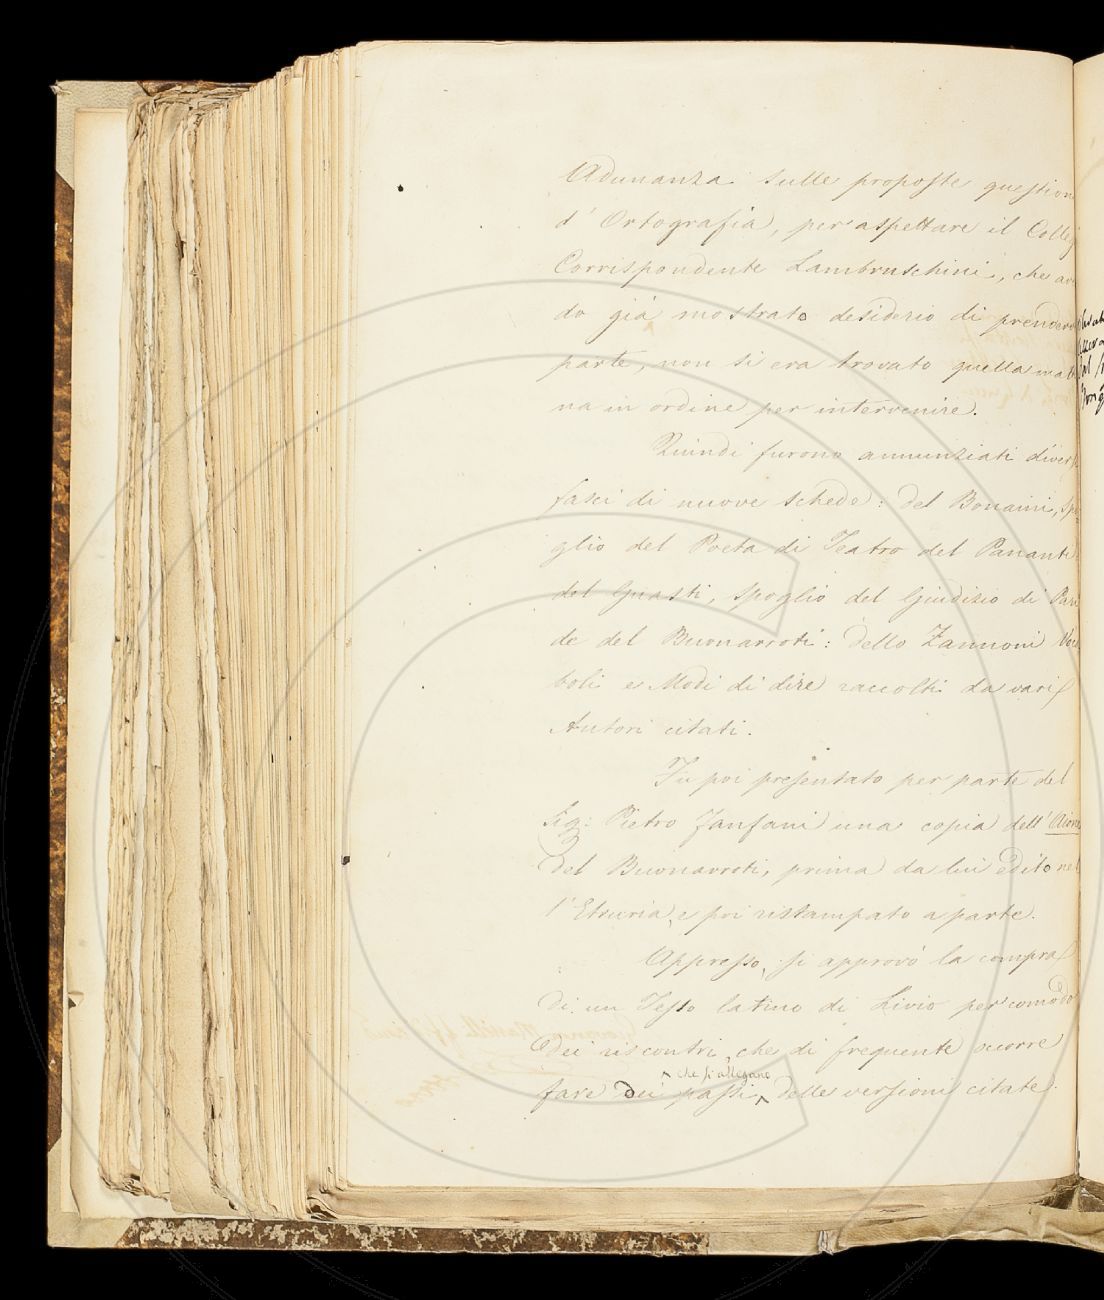 Adunanza sulle proposte question
d'Ortografia, per aspettare il Colleg
Corrispondente Lambruschini, che av
do già mostrato desiderio di prender
parte, non si era trovato quella mat
na in ordine per intervenire.
Quindi furono annunziati diversi
fasci di nuove schede: del Bonaini, spo
glio del Poeta di Teatro del Pananti
del Guasti, spoglio del Giudizio di Pari
de del Buonarroti: dello Zannoni Voca
boli e Modi di dire raccolti da varii
Autori citati.
Fu poi presentato per parte del
Sig: Pietro Fanfani una copia dell'Aione
del Buonarroti, prima da lui edito nel
l'Etruria, e poi ristampato a parte.
Appresso, si approvò la compra
di un Testo latino di Livio per comodo
dei riscontri, che di frequente occorre
che si allegano
fare dei passi delle versioni citate.